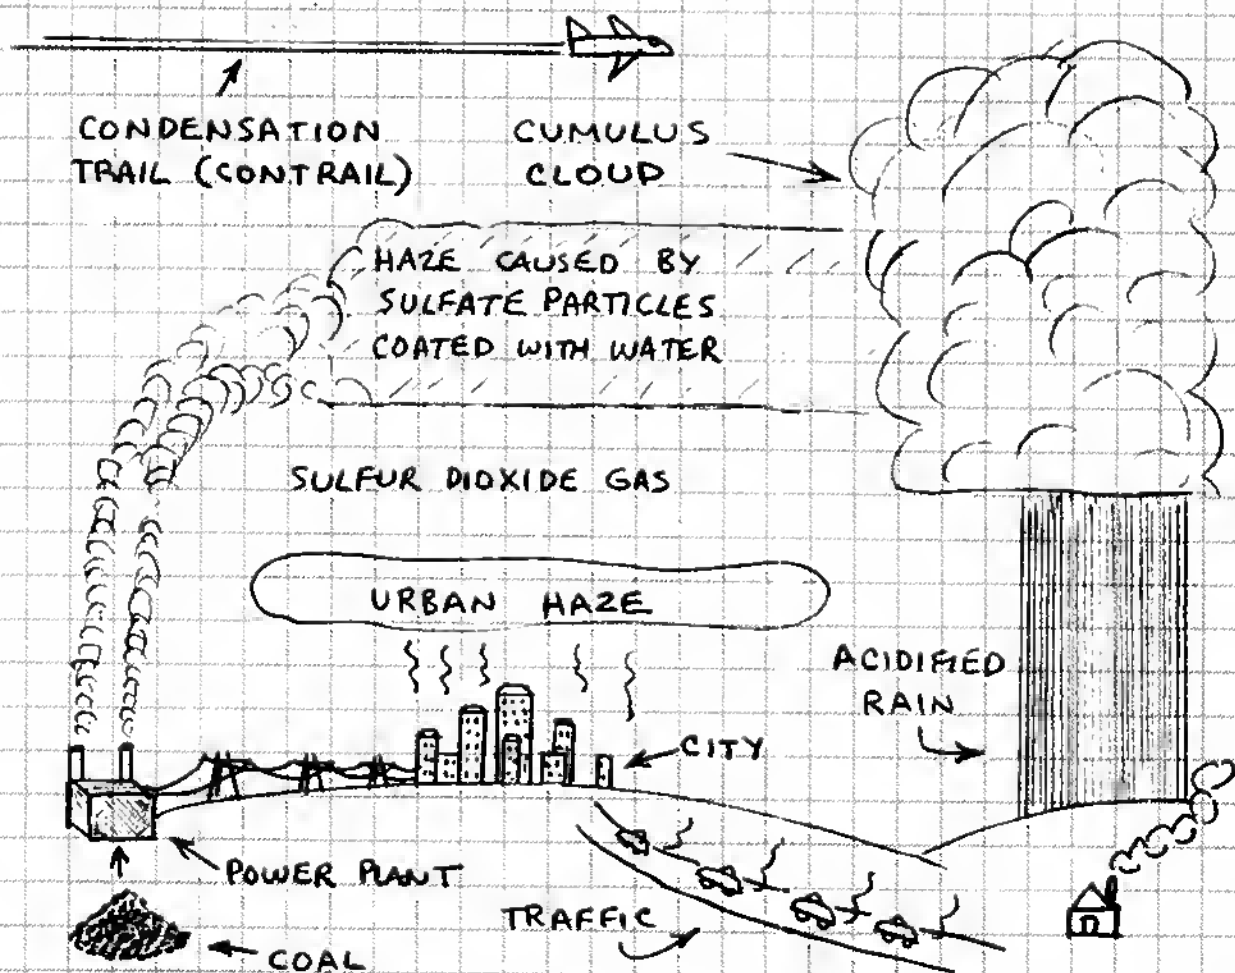 CONDENSATION
TRAIL (CONTRAIL)
CUMULUS
CLOUD
HAZE CAUSED BY
SULFATE PARTICLES
COATED WITH WATER
SULFUR DIOXIDE GAS
URBAN HAZE
ACIDIFIED
RAIN
CITY
POWER PLANT
TRAFFIC
COAL